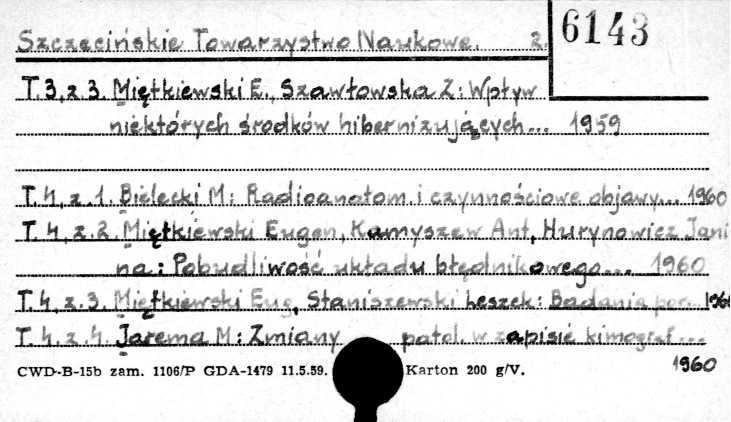 Szczecińskie Towarzystwo Naukowe. 2. 6143
T.3, z.3. Miętkiewski E., Szawłowska Z: Wpływ
niektórych środków hibernizujących... 1959
T.4, z.1. Bielecki M: Radioanatom. i czynnościowe objawy... 1960
T.4, z.2. Miętkiewski Eugen, Kamyszew Ant, Hurynowicz Jani
na: Pobudliwość układu błędnikowego... 1960
T.4, z.3. Miętkiewski Eug, Staniszewski Leszek: Badania por... 196
T.4, z.4. Jarema M: Zmiany patol. w zapisie kimograf...
1960
CWD-B-15b zam. 1106/P GDA-1479 11.5.59. Karton 200 g/V.